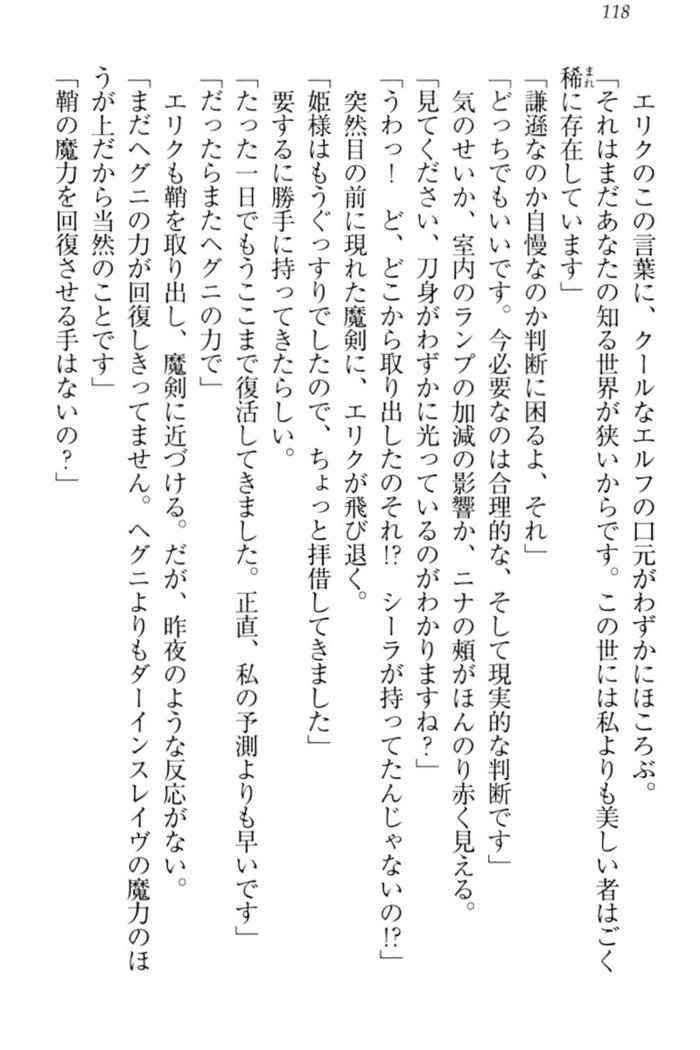 118
エリクのこの言葉に、クールなエルフの口元がわずかにほころぶ。
「それはまだあなたの知る世界が狭いからです。この世には私よりも美しい者はごく
稀に存在しています」
まれ
「謙遜なのか自慢なのか判断に困るよ、それ」
「どっちでもいいです。今必要なのは合理的な、そして現実的な判断です」
気のせいか、室内のランプの加減の影響か、ニナの頰がほんのり赤く見える。
「見てください、刀身がわずかに光っているのがわかりますね？」
「うわっ！　ど、どこから取り出したのそれ!?　シーラが持ってたんじゃないの!?」
突然目の前に現れた魔剣に、エリクが飛び退く。
「姫様はもうぐっすりでしたので、ちょっと拝借してきました」
要するに勝手に持ってきたらしい。
「たった一日でもうここまで復活してきました。正直、私の予測よりも早いです」
「だったらまたヘグニの力で」
エリクも鞘を取り出し、魔剣に近づける。だが、昨夜のような反応がない。
「まだヘグニの力が回復しきってません。ヘグニよりもダーインスレイヴの魔力のほ
うが上だから当然のことです」
「鞘の魔力を回復させる手はないの？」